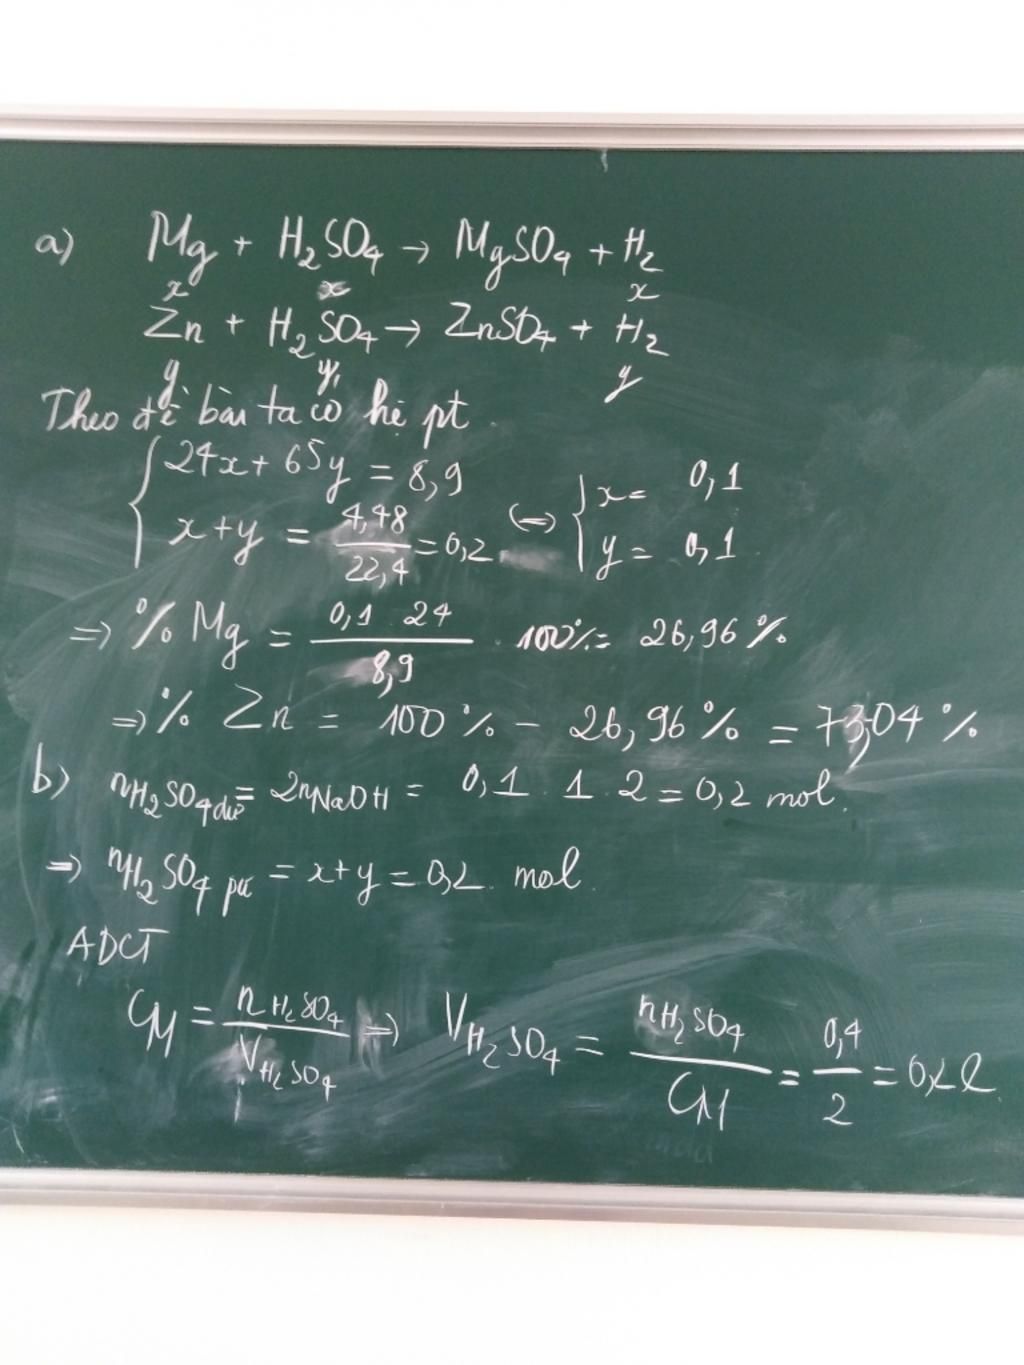 a) Mg + H₂SO₄ → MgSO₄ + H₂
x x x
Zn + H₂SO₄ → ZnSO₄ + H₂
y y y
Theo đề bài ta có hệ pt.
{ 24x + 65y = 8,9
x + y = 4,48/22,4 = 0,2 (=) { x = 0,1
y = 0,1
=> % Mg = 0,1 . 24 / 8,9 . 100% = 26,96 %
=> % Zn = 100 % - 26,96 % = 73,04 %
b) nH₂SO₄ dư = 2nNaOH = 0,1 . 1 . 2 = 0,2 mol.
=> nH₂SO₄ pư = x + y = 0,2 mol.
ADCT
CM = nH₂SO₄ / VH₂SO₄ => VH₂SO₄ = nH₂SO₄ / CM = 0,4 / 2 = 0,2 l.